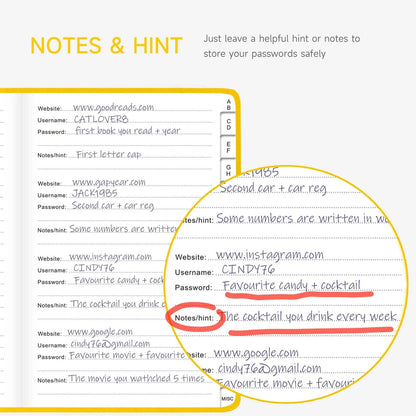 NOTES & HINT
Just leave a helpful hint or notes to
store your passwords safely
Website: www.goodreads.com
Username: CATLOVER8
Password: first book you read + year
Notes/hint: First letter cap
Website: www.gapycar.com
Username: JACK1985
Password: Second car + car reg
Notes/hint: Some numbers are written
Website: www.instagram.com
Username: CINDY76
Password: Favourite candy + cock
Notes/hint: The cocktail you drink
Website: www.google.com
Username: cindy76@gmail.com
Password: Favourite movie + favouri
Notes/hint: The movie you wathched 5 times
A
B
C
D
E
F
G
H
MISC
JACK1985
Second car + car reg
Notes/hint: Some numbers are written in
Website: www.instagram.com
Username: CINDY76
Password: Favourite candy + cocktail
Notes/hint: The cocktail you drink every week
Website: www.google.com
cindy76@gmail.com
Favourite movie + favouri